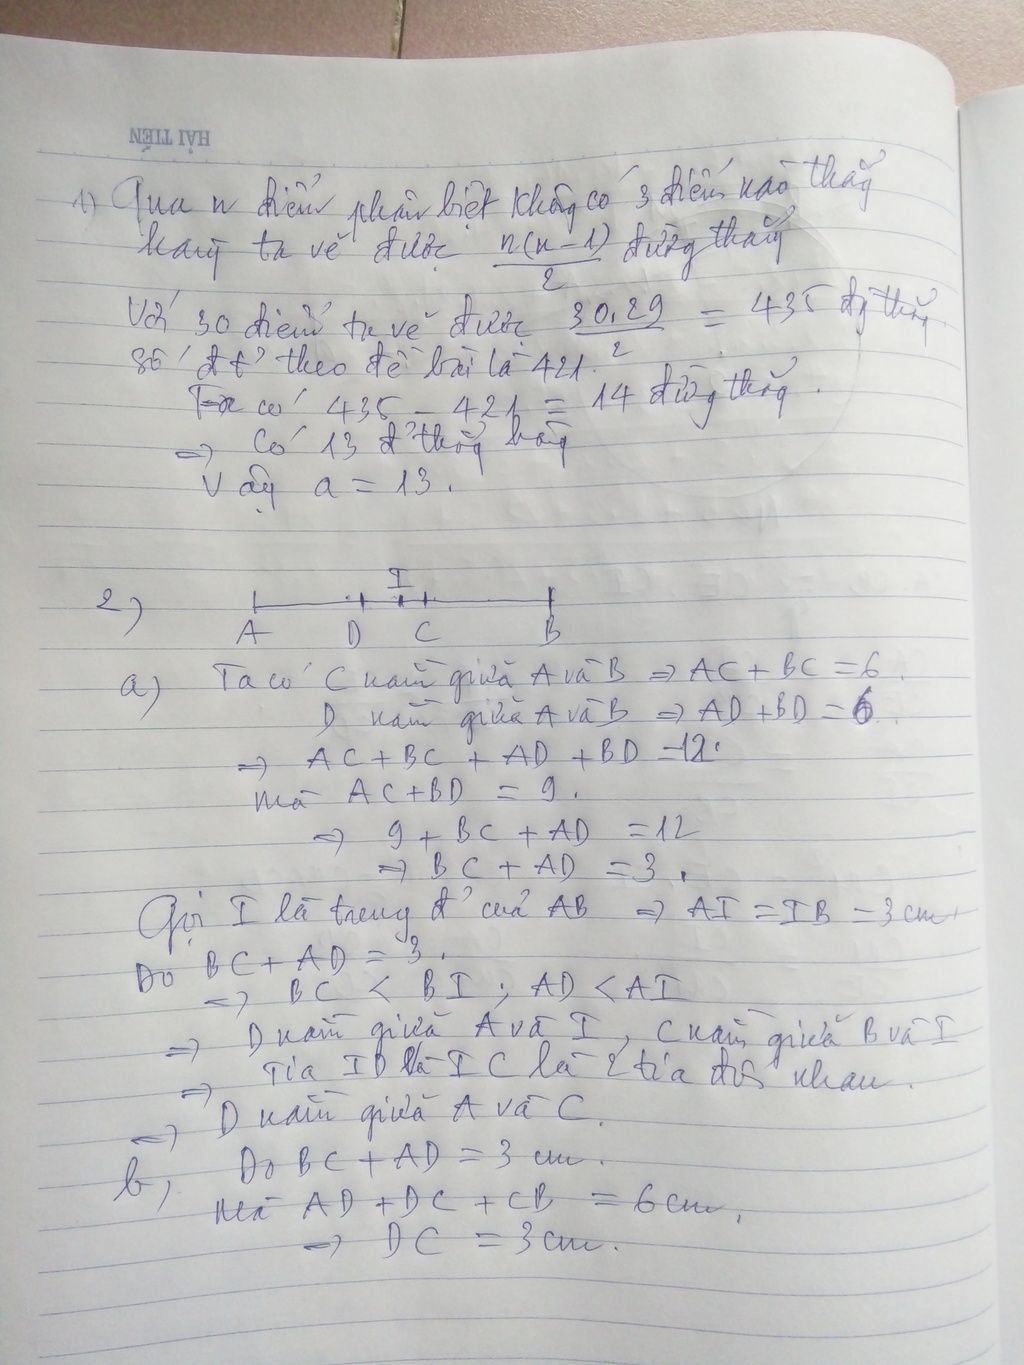 HẢI TIẾN
1) Qua n điểm phân biệt không có 3 điểm nào thẳg
hàng ta vẽ được n(n-1)/2 đường thẳng
Với 30 điểm ta vẽ được 30.29/2 = 435 đg thẳng
Số đt theo đề bài là 421.
Ta có 435 - 421 = 14 đường thẳng.
=> Có 13 đ' thẳng hàng
Vậy a = 13.
2)
I
A D C B
a) Ta có C nằm giữa A và B => AC + BC = 6.
D nằm giữa A và B => AD + BD = 6.
=> AC + BC + AD + BD = 12.
Mà AC + BD = 9.
=> 9 + BC + AD = 12
=> BC + AD = 3.
Gọi I là trung đ' của AB => AI = IB = 3 cm
Do BC + AD = 3.
=> BC < BI ; AD < AI
=> D nằm giữa A và I, C nằm giữa B và I
=> Tia ID và IC là 2 tia đối nhau.
=> D nằm giữa A và C.
b, Do BC + AD = 3 cm.
Mà AD + DC + CB = 6 cm.
=> DC = 3 cm.